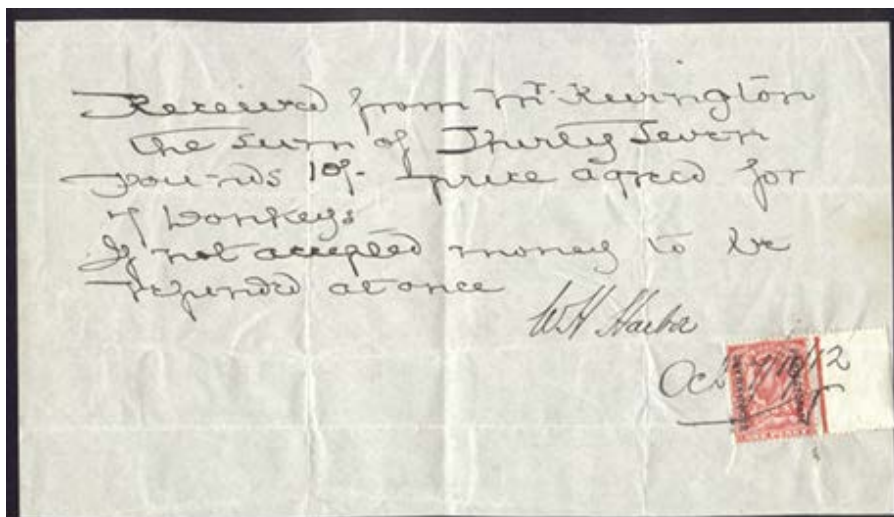 Received from Mr. Kevington
the sum of Thirty Seven
Pounds 10/- price agreed for
7 Donkeys
If not accepted money to be
refunded at once
W H Harbor
Oct
ONE PENNY